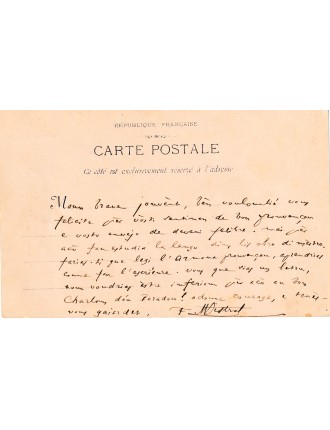 RÉPUBLIQUE FRANÇAISE
CARTE POSTALE
Ce côté est exclusivement réservé à l'adresse
Moun brave jouvènt, bèn voulountié vous
felicite pèr vòsti sentimen de bon prouvençau
e vosto envejo de deveni felibre. mai pèr
acò fau estudia la lengo dins lis obro di mèstre.
fariés-ti que legi l'Armana prouvençau, aprendrias
coume fau l'escriéure. vous que sias un letru,
noun voudrias èstre inferiour pèr acò au bon
Charloun dóu Paradou! adounc courage, e tenès-
vous gaiardet. F. Mistral